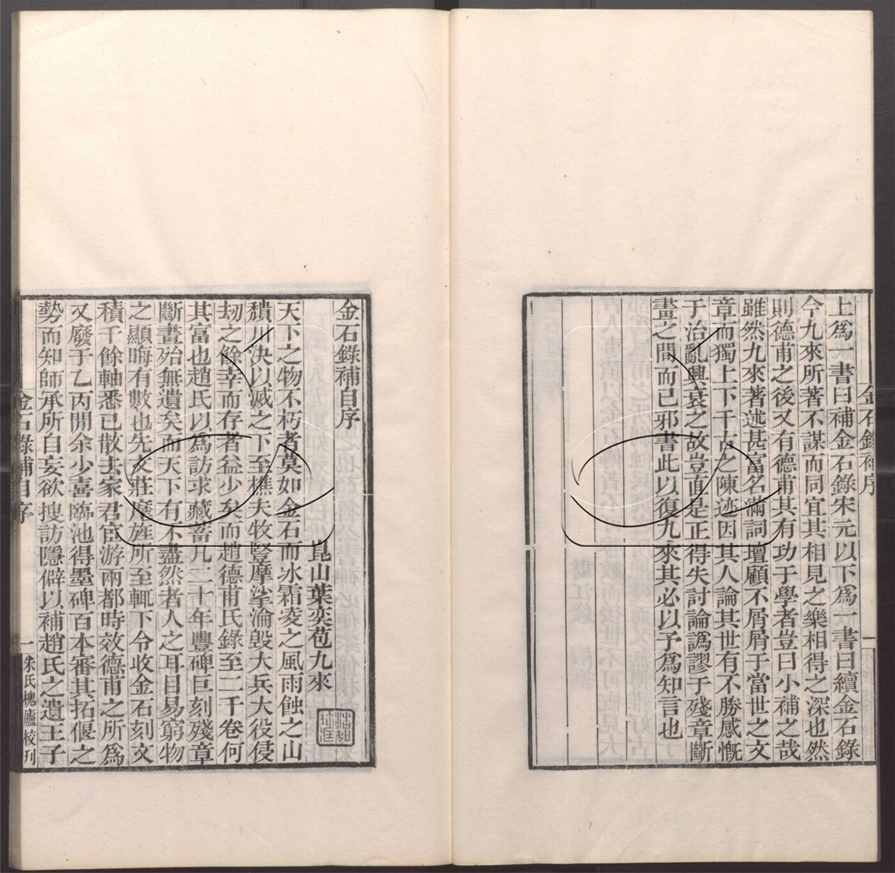 上爲一書曰補金石錄宋元以下爲一書曰續金石錄
今九來所著不謀而同宜其相見之樂相得之深也然
則德甫之後又有德甫其有功于學者豈曰小補之哉
雖然九來著述甚富名滿詞壇顧不屑屑于當世之文
章而獨上下千古之陳迹因其人論其世有不勝感慨
于治亂興衰之故豈直是正得失討論譌謬于殘章斷
畫之間而已邪書此以復九來其必以予爲知言也
金石錄補序
金石錄補自序
崑山葉奕苞九來
天下之物不朽者莫如金石而冰霜凌之風雨蝕之山
穨川決以滅之下至樵夫牧豎摩挲淪毀大兵大役侵
刼之餘幸而存者益少矣而趙德甫氏錄至二千卷何
其富也趙氏以爲訪求藏畜凡二十年豐碑巨刻殘章
斷畫殆無遺矣而天下有不盡然者人之耳目易窮物
之顯晦有數也先友莊麾旌所至輒下令收金石刻文
積千餘軸悉已散去家君宦游兩都時效德甫之所爲
又廢于乙丙閒余少喜臨池得墨碑百本審其拓偃之
勢而知師承所自妄欲搜訪隱僻以補趙氏之遺王子
金石錄補自序
一
朱氏槐廬校刊